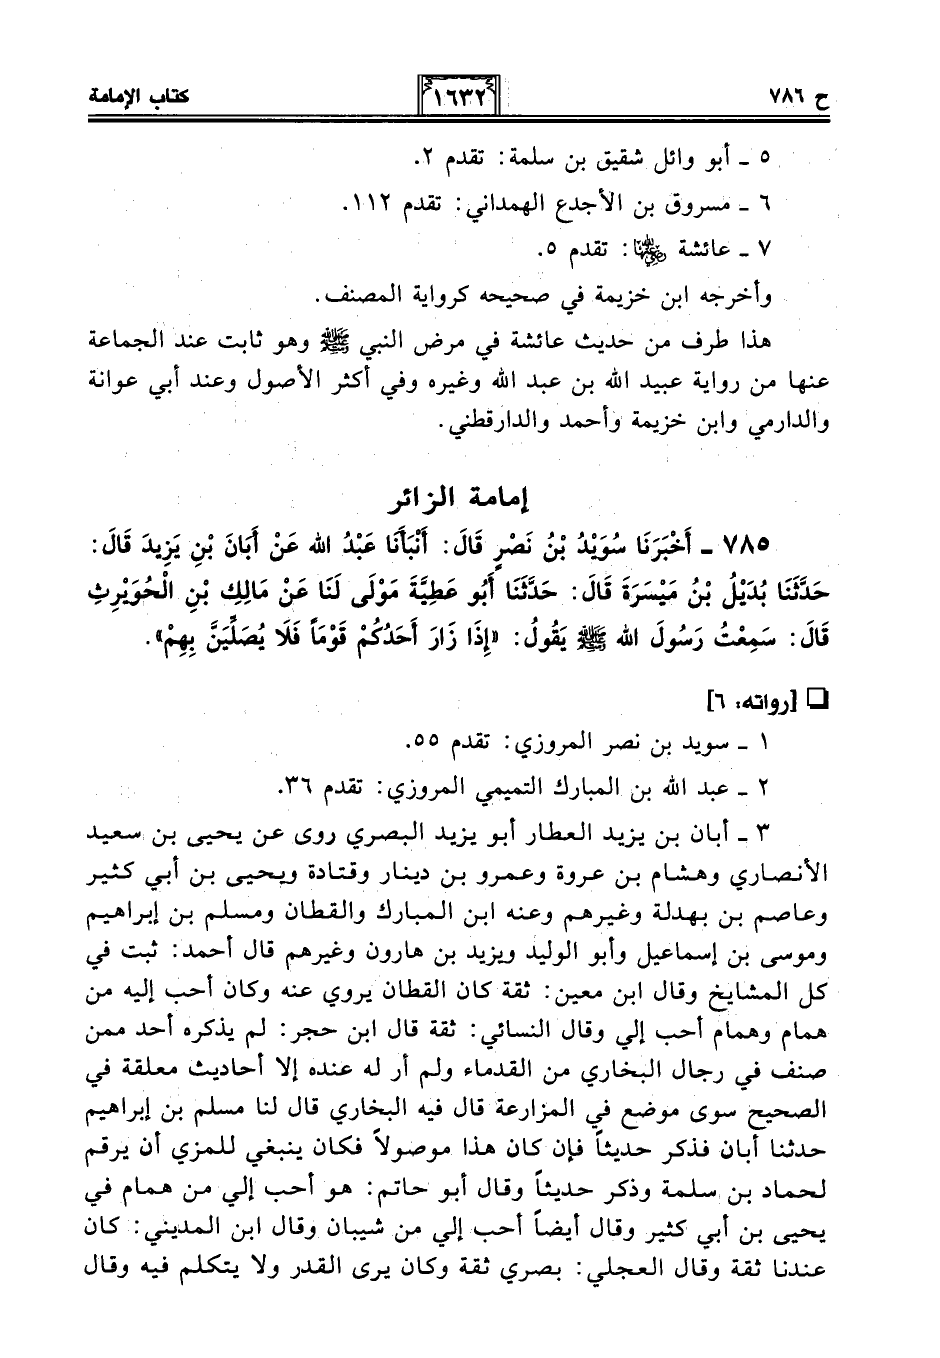 ح ٧٨٦ ١٦٣٢ كتاب الإمامة
٥ ـ أبو وائل شقيق بن سلمة: تقدم ٢.
٦ ـ مسروق بن الأجدع الهمداني: تقدم ١١٢.
٧ ـ عائشة رضي الله عنها: تقدم ٥.
وأخرجه ابن خزيمة في صحيحه كرواية المصنف.
هذا طرف من حديث عائشة في مرض النبي ﷺ وهو ثابت عند الجماعة
عنها من رواية عبيد الله بن عبد الله وغيره وفي أكثر الأصول وعند أبي عوانة
والدارمي وابن خزيمة وأحمد والدارقطني.
إمامة الزائر
٧٨٥ ـ أَخْبَرَنَا سُوَيْدُ بْنُ نَصْرٍ قَالَ: أَنْبَأَنَا عَبْدُ الله عَنْ أَبَانَ بْنِ يَزِيدَ قَالَ:
حَدَّثَنَا بُدَيْلُ بْنُ مَيْسَرَةَ قَالَ: حَدَّثَنَا أَبُو عَطِيَّةَ مَوْلَى لَنَا عَنْ مَالِكِ بْنِ الْحُوَيْرِثِ
قَالَ: سَمِعْتُ رَسُولَ الله ﷺ يَقُولُ: «إِذَا زَارَ أَحَدُكُمْ قَوْمَاً فَلَا يُصَلِّيَنَّ بِهِمْ».
❏ [رواته: ٦]
١ ـ سويد بن نصر المروزي: تقدم ٥٥.
٢ ـ عبد الله بن المبارك التميمي المروزي: تقدم ٣٦.
٣ ـ أبان بن يزيد العطار أبو يزيد البصري روى عن يحيى بن سعيد
الأنصاري وهشام بن عروة وعمرو بن دينار وقتادة ويحيى بن أبي كثير
وعاصم بن بهدلة وغيرهم وعنه ابن المبارك والقطان ومسلم بن إبراهيم
وموسى بن إسماعيل وأبو الوليد ويزيد بن هارون وغيرهم قال أحمد: ثبت في
كل المشايخ وقال ابن معين: ثقة كان القطان يروي عنه وكان أحب إليه من
همام وهمام أحب إلي وقال النسائي: ثقة قال ابن حجر: لم يذكره أحد ممن
صنف في رجال البخاري من القدماء ولم أر له عنده إلا أحاديث معلقة في
الصحيح سوى موضع في المزارعة قال فيه البخاري قال لنا مسلم بن إبراهيم
حدثنا أبان فذكر حديثاً فإن كان هذا موصولاً فكان ينبغي للمزي أن يرقم
لحماد بن سلمة وذكر حديثاً وقال أبو حاتم: هو أحب إلي من همام في
يحيى بن أبي كثير وقال أيضاً أحب إلي من شيبان وقال ابن المديني: كان
عندنا ثقة وقال العجلي: بصري ثقة وكان يرى القدر ولا يتكلم فيه وقال